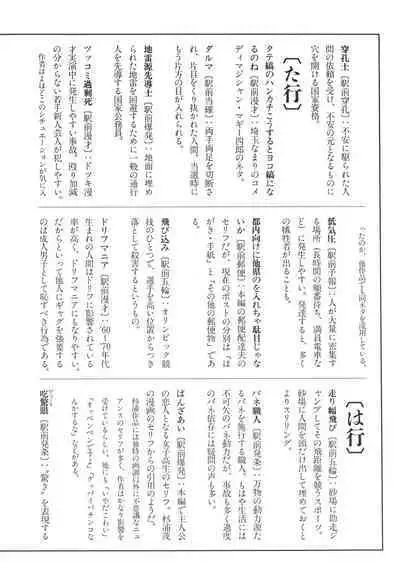 穿孔士【駅前穿孔】：不安に駆られた人
間の依頼を受け、不安の元となるものに
穴を開ける国家資格。
【た行】
タテ縞のハンカチこうするとヨコ縞にな
るのね【駅前漫才】：埼玉なまりのコメ
ディマジシャン・マギー四郎のネタ。
ダルマ【駅前当確】：両手両足を切断さ
れ、片目をくり抜かれた人間。当選時に
もう片方の目が入れられる。
地雷源先導士【駅前爆発】：地面に埋め
られた地雷を回避するために一般の通行
人を先導する国家公務員。
ツッコミ過剰死【駅前漫才】：ドツキ漫
才実演中に発生しやすい事故。殴り加減
の分からない若手新人芸人が犯しやすい。
作者はよほどこのシチュエーションが気に入
ったのか、他作品でも同ネタを流用している。
低気圧【駅前予報】：人が大量に密集す
る場所（長時間の順番待ち、満員電車な
ど）に発生しやすい。発達すると、多く
の犠牲者が出ることも。
都内向けに他県のを入れちゃ駄目じゃな
いか【駅前郵便】：本編の郵便配達夫の
セリフだが、現在のポストの分別は「は
がき・手紙」と「その他の郵便物」であ
る。
飛び込み【駅前五輪】：オリンピック競
技のひとつで、選手を高い位置からつき
落として殺害するというもの。
ドリフマニア【駅前漫才】：60～70年代
生まれの人間はドリフに影響されている
率が高く、ドリフマニアにもなりやすい。
だからといって他人にギャグを強要する
のは成人男子として恥ずべき行為である。
【は行】
走り幅飛び【駅前五輪】：砂場に助走ジ
ャンプしてその飛距離を競うスポーツ。
砂場に人間を頭だけ出して埋めておくと
よりスリリング。
バネ職人【駅前発条】：万物の動力源た
るバネを施行する職人。もはや生活には
不可欠のバネ動力だが、事故も多く過度
のバネ依存には疑問の声も多い。
ばんざあい【駅前爆発】：本編で主人公
の恋人となる女子高生のセリフ。杉浦茂
の漫画のセリフからの引用のようだ。
杉浦作品には独特の画調以外に不思議なニュ
アンスのセリフが多く、作者はかなり影響を
受けているらしい。
吃驚箱【駅前発条】：“驚き”を表現する